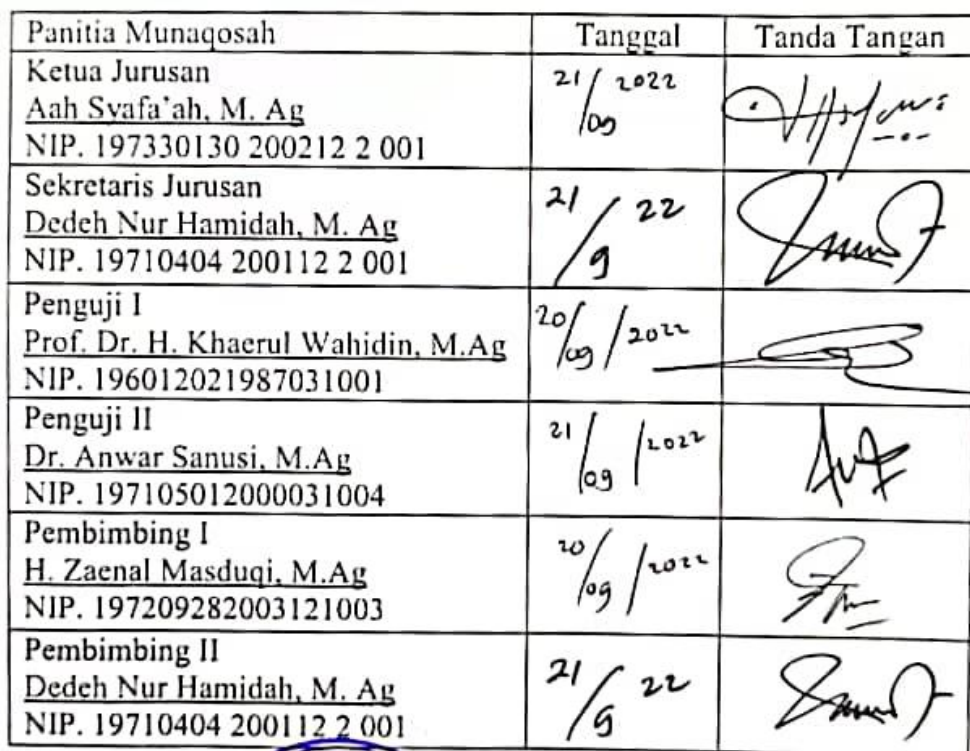 Panitia Munaqosah Tanggal Tanda Tangan
Ketua Jurusan
Aah Syafa'ah, M. Ag
NIP. 197330130 200212 2 001
21/09 2022
Sekretaris Jurusan
Dedeh Nur Hamidah, M. Ag
NIP. 19710404 200112 2 001
21/9 22
Penguji I
Prof. Dr. H. Khaerul Wahidin, M.Ag
NIP. 196012021987031001
20/09/2022
Penguji II
Dr. Anwar Sanusi, M.Ag
NIP. 197105012000031004
21/09/2022
Pembimbing I
H. Zaenal Masduqi, M.Ag
NIP. 197209282003121003
20/09/2022
Pembimbing II
Dedeh Nur Hamidah, M. Ag
NIP. 19710404 200112 2 001
21/9 22